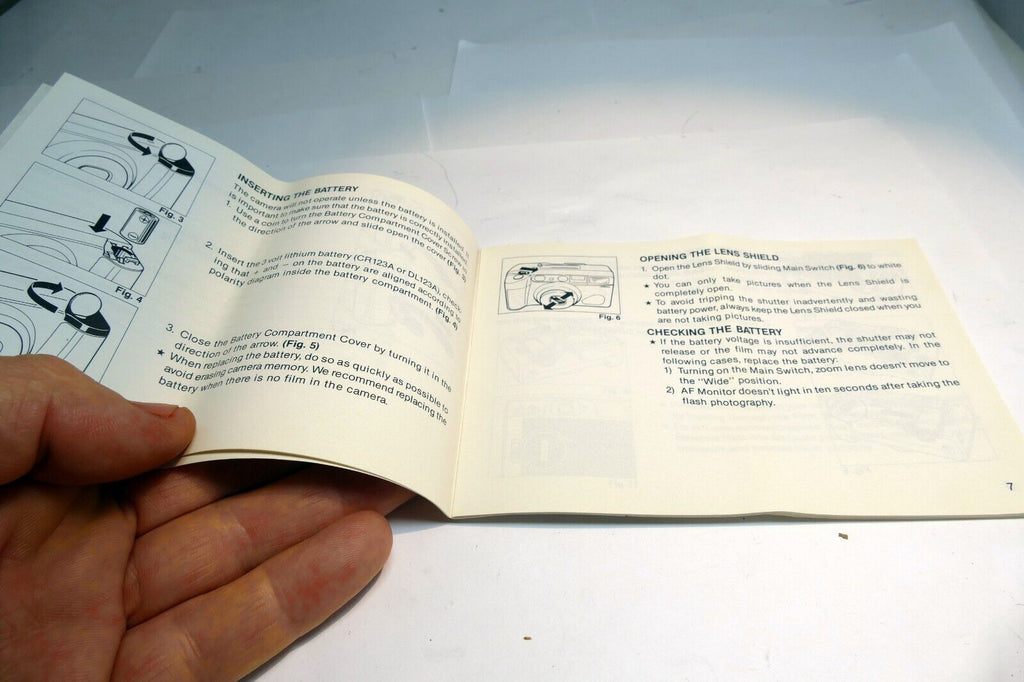 Fig. 3
Fig. 4
INSERTING THE BATTERY
The camera will not operate unless the battery is installed. It
is important to make sure that the battery is correctly installed.
1. Use a coin to turn the Battery Compartment Cover Screw in
the direction of the arrow and slide open the cover (Fig. 3)
2. Insert the 3 volt lithium battery (CR123A or DL123A), check
ing that + and – on the battery are aligned according to
polarity diagram inside the battery compartment. (Fig. 4)
3. Close the Battery Compartment Cover by turning it in the
direction of the arrow. (Fig. 5)
★ When replacing the battery, do so as quickly as possible to
avoid erasing camera memory. We recommend replacing the
battery when there is no film in the camera.
Fig. 6
OPENING THE LENS SHIELD
1. Open the Lens Shield by sliding Main Switch (Fig. 6) to white
dot.
★ You can only take pictures when the Lens Shield is
completely open.
★ To avoid tripping the shutter inadvertently and wasting
battery power, always keep the Lens Shield closed when you
are not taking pictures.
CHECKING THE BATTERY
★ If the battery voltage is insufficient, the shutter may not
release or the film may not advance completely. In the
following cases, replace the battery:
1) Turning on the Main Switch, zoom lens doesn't move to
the "Wide" position.
2) AF Monitor doesn't light in ten seconds after taking the
flash photography.
7